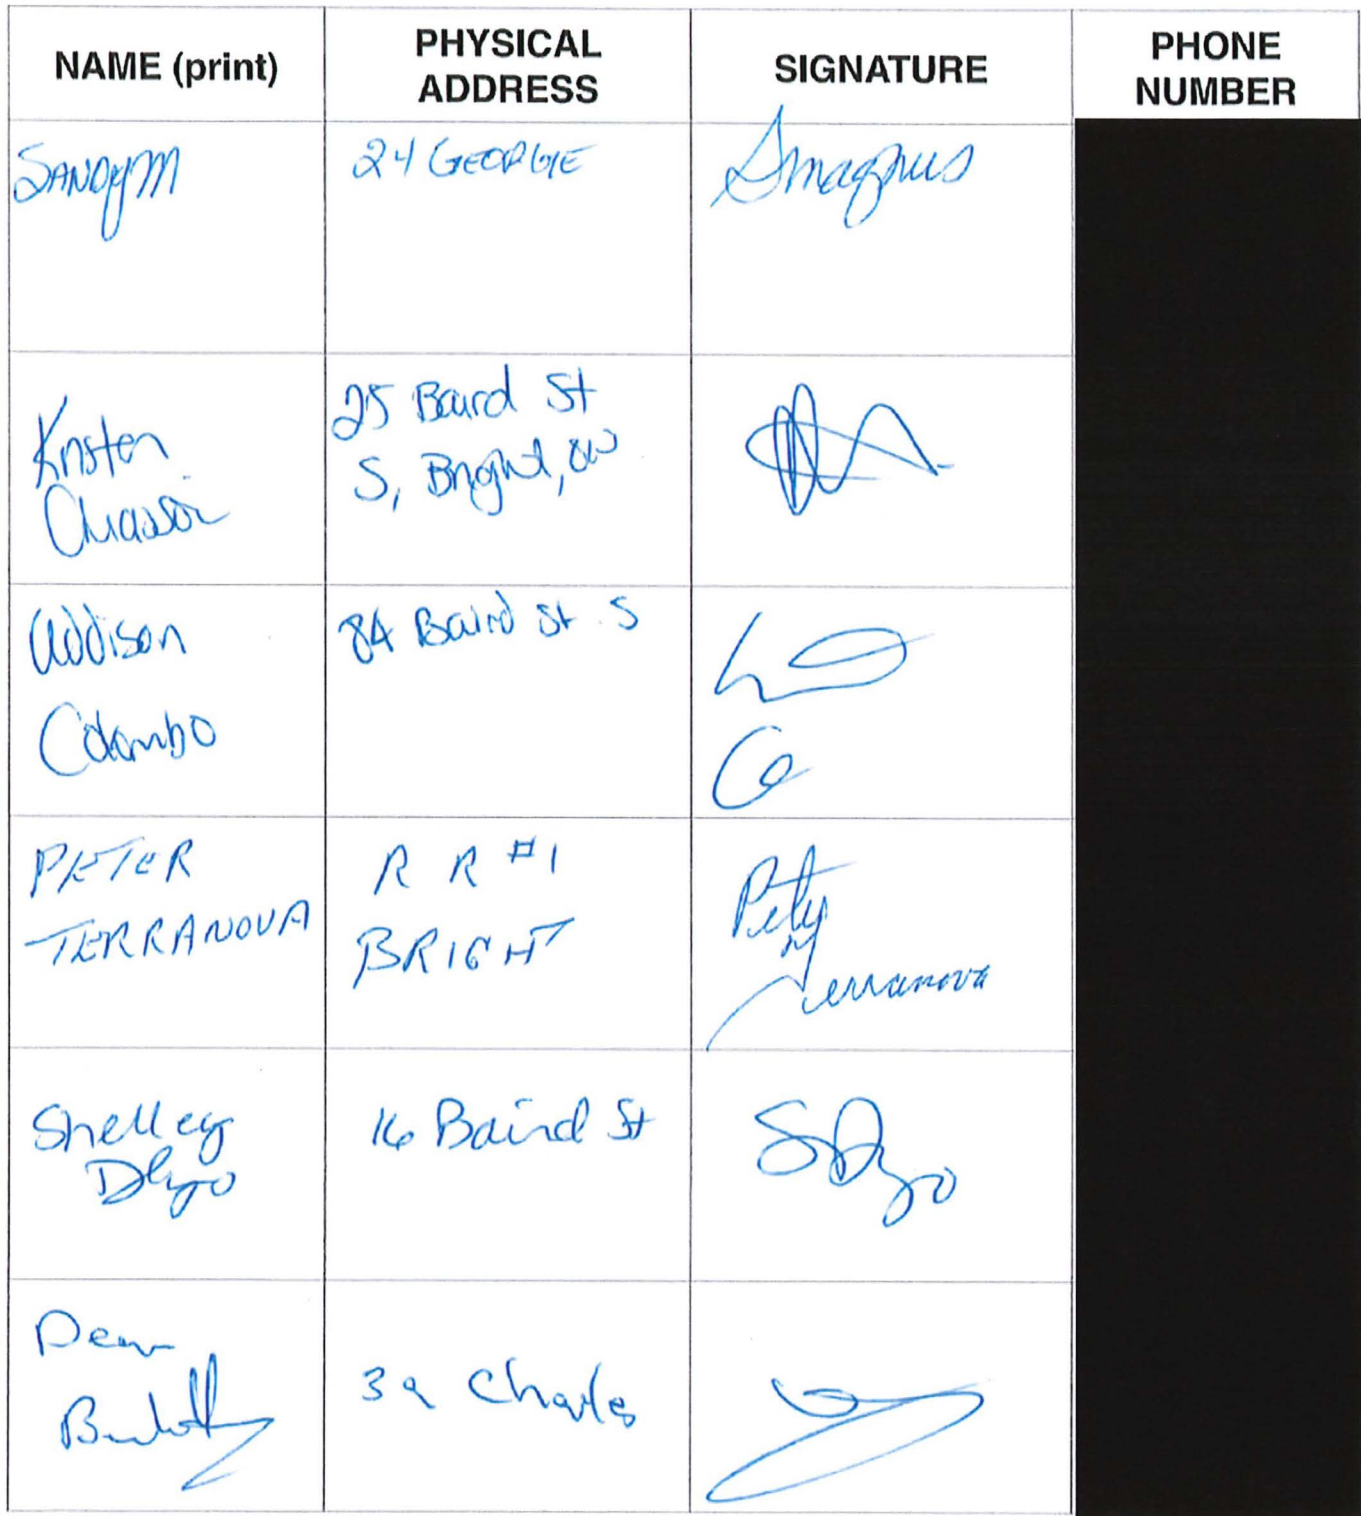 NAME (print)
PHYSICAL
ADDRESS
SIGNATURE
PHONE
NUMBER
SANDY M
24 GEORGIE
Smagnus
Kristen
25 Baird St
S, Bright, ON
Addison
Colombo
84 Baird St. S
PETER
TERRANOVA
R R #1
BRIGHT
Peter
Terranova
Shelley
16 Baird St
Dean
Charles